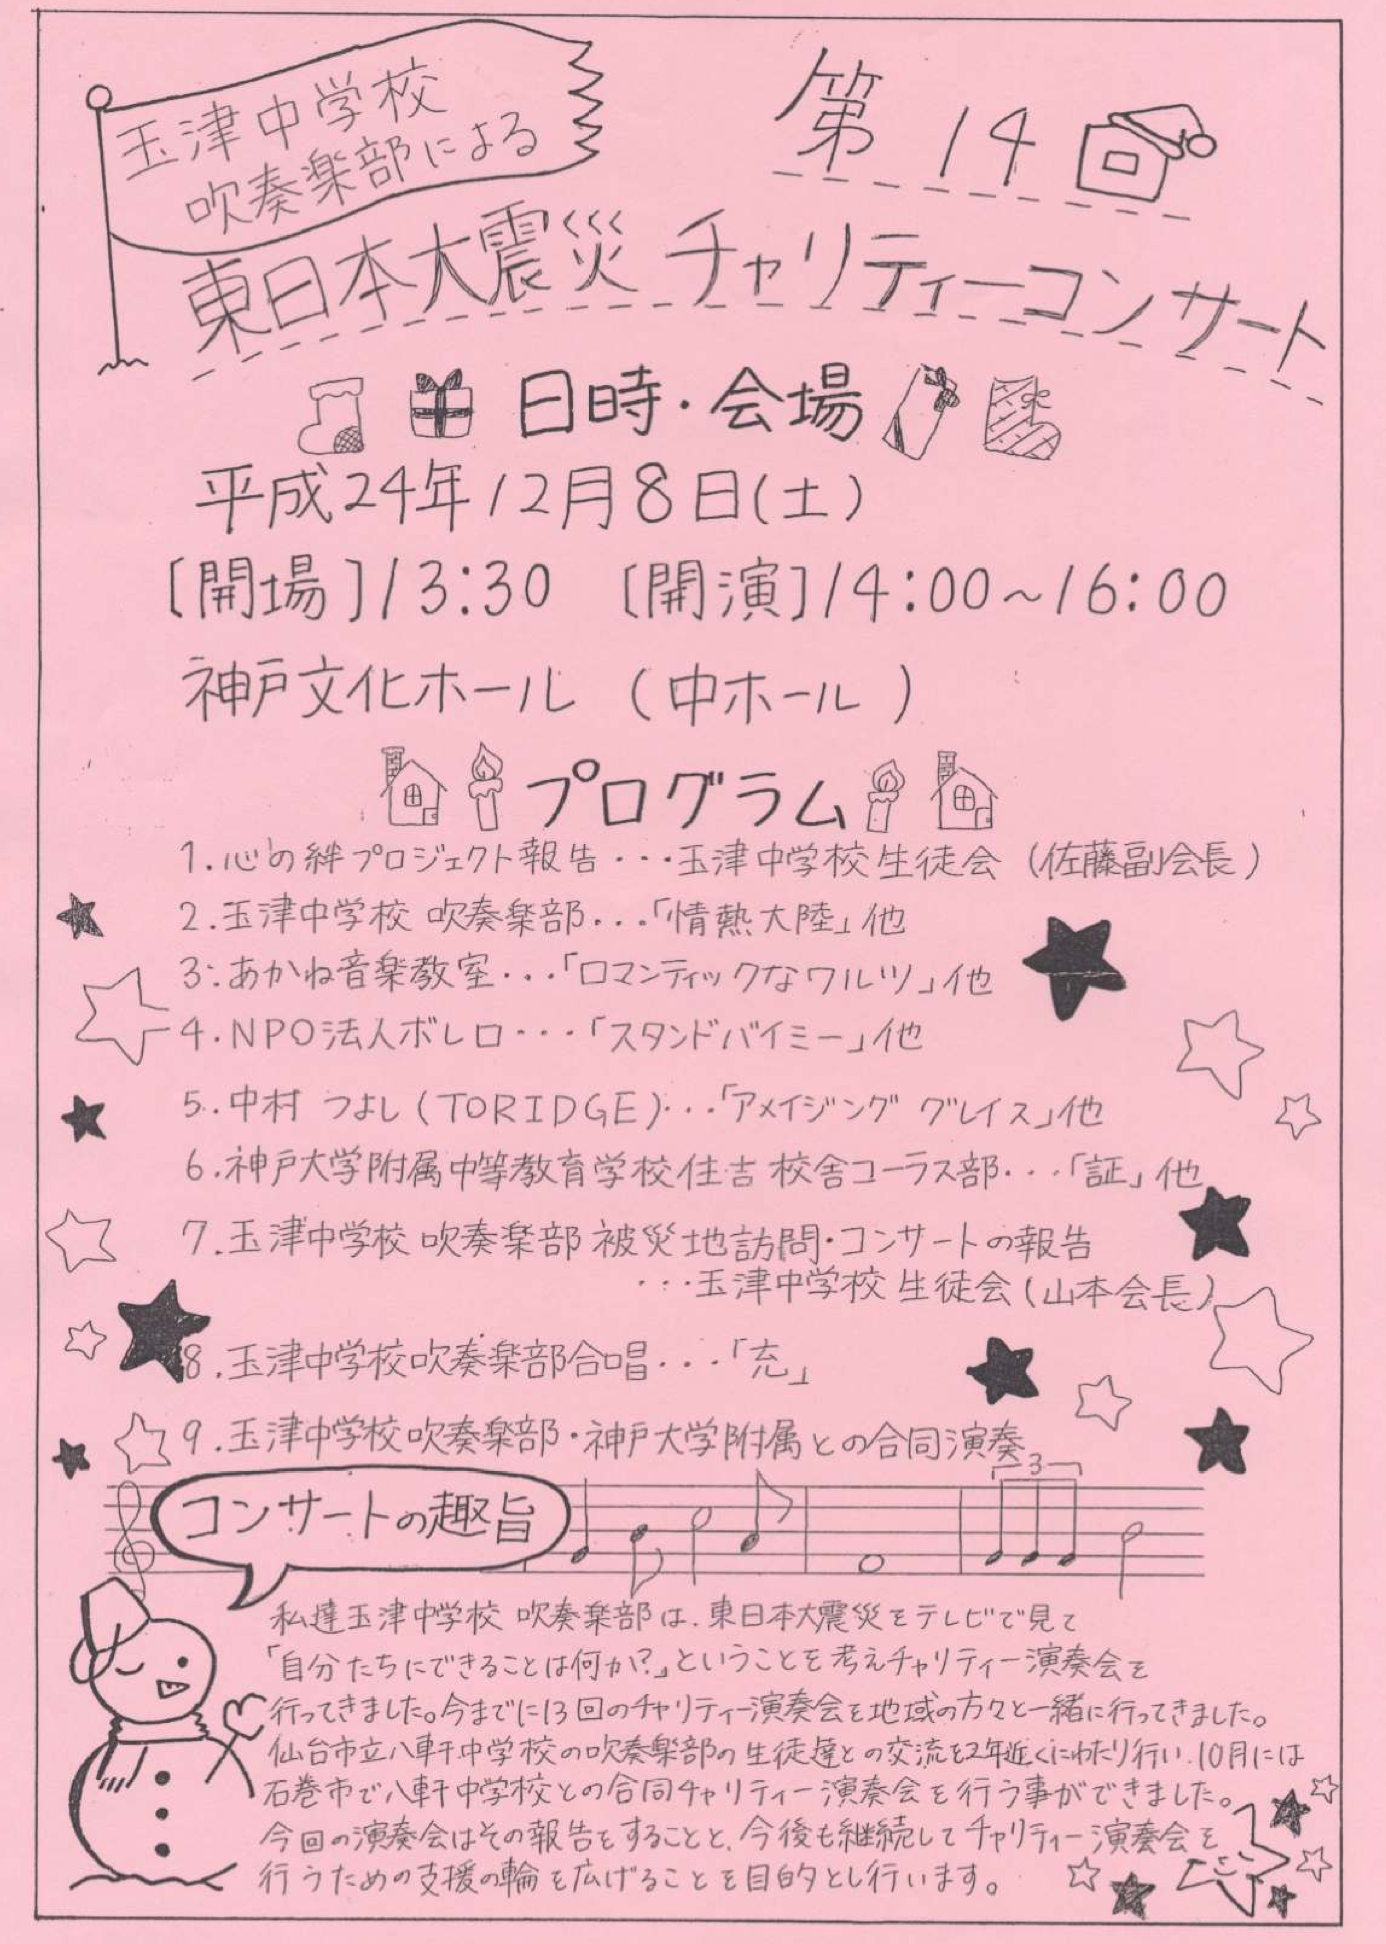 玉津中学校
吹奏楽部による
第14回
東日本大震災 チャリティーコンサート
日時・会場
平成24年12月8日(土)
[開場]13:30 [開演]14:00~16:00
神戸文化ホール (中ホール)
プログラム
1.心の絆プロジェクト報告・・・玉津中学校生徒会(佐藤副会長)
2.玉津中学校 吹奏楽部・・・「情熱大陸」他
3.あかね音楽教室・・・「ロマンティックなワルツ」他
4.NPO法人ボレロ・・・「スタンドバイミー」他
5.中村 つよし(TORIDGE)・・・「アメイジング グレイス」他
6.神戸大学附属中等教育学校住吉校舎コーラス部・・・「証」他
7.玉津中学校 吹奏楽部 被災地訪問・コンサートの報告
・・・玉津中学校 生徒会(山本会長)
8.玉津中学校吹奏楽部合唱・・・「充」
9.玉津中学校吹奏楽部・神戸大学附属との合同演奏
3
コンサートの趣旨
私達玉津中学校 吹奏楽部は、東日本大震災をテレビで見て
「自分たちにできることは何か?」ということを考えチャリティー演奏会を
行ってきました。今までに13回のチャリティー演奏会を地域の方々と一緒に行ってきました。
仙台市立八軒中学校の吹奏楽部の生徒達との交流を2年近くにわたり行い、10月には
石巻市で八軒中学校との合同チャリティー演奏会を行う事ができました。
今回の演奏会はその報告をすることと、今後も継続してチャリティー演奏会を
行うための支援の輪を広げることを目的とし行います。